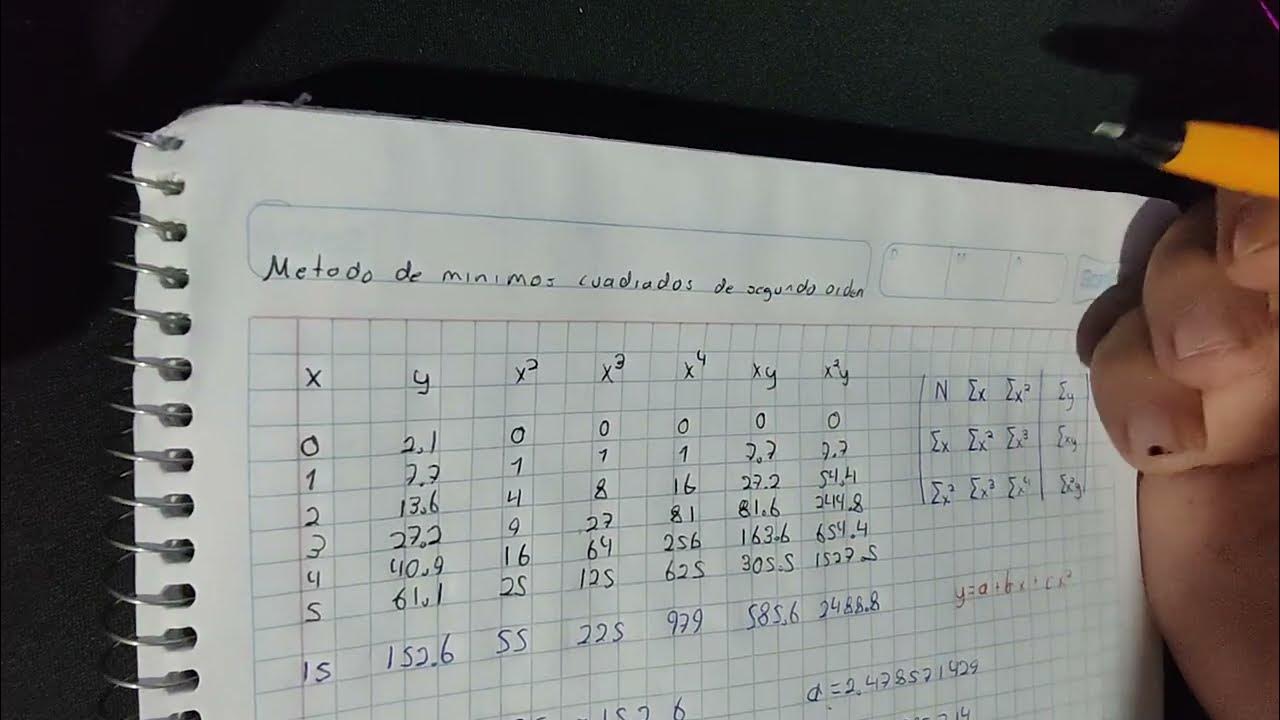 Metodo de minimos cuadrados de segundo orden
x y x² x³ x⁴ xy x²y
0 2.1 0 0 0 0 0
1 7.7 1 1 1 7.7 7.7
2 13.6 4 8 16 27.2 54.4
3 27.2 9 27 81 81.6 244.8
4 40.9 16 64 256 163.6 654.4
5 61.1 25 125 625 305.5 1527.5
15 152.6 55 225 979 585.6 2488.8
N Σx Σx² Σy
Σx Σx² Σx³ Σxy
Σx² Σx³ Σx⁴ Σx²y
y=a+bx+cx²
152.6
a=2.478571429